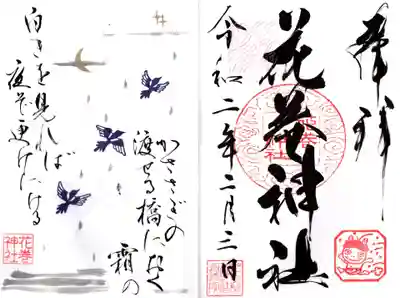 奉拝
花巻神社
令和二年二月三日
かささぎの
渡せる橋に おく
霜の
白きを見れば
夜ぞ更けにける
花巻
神社